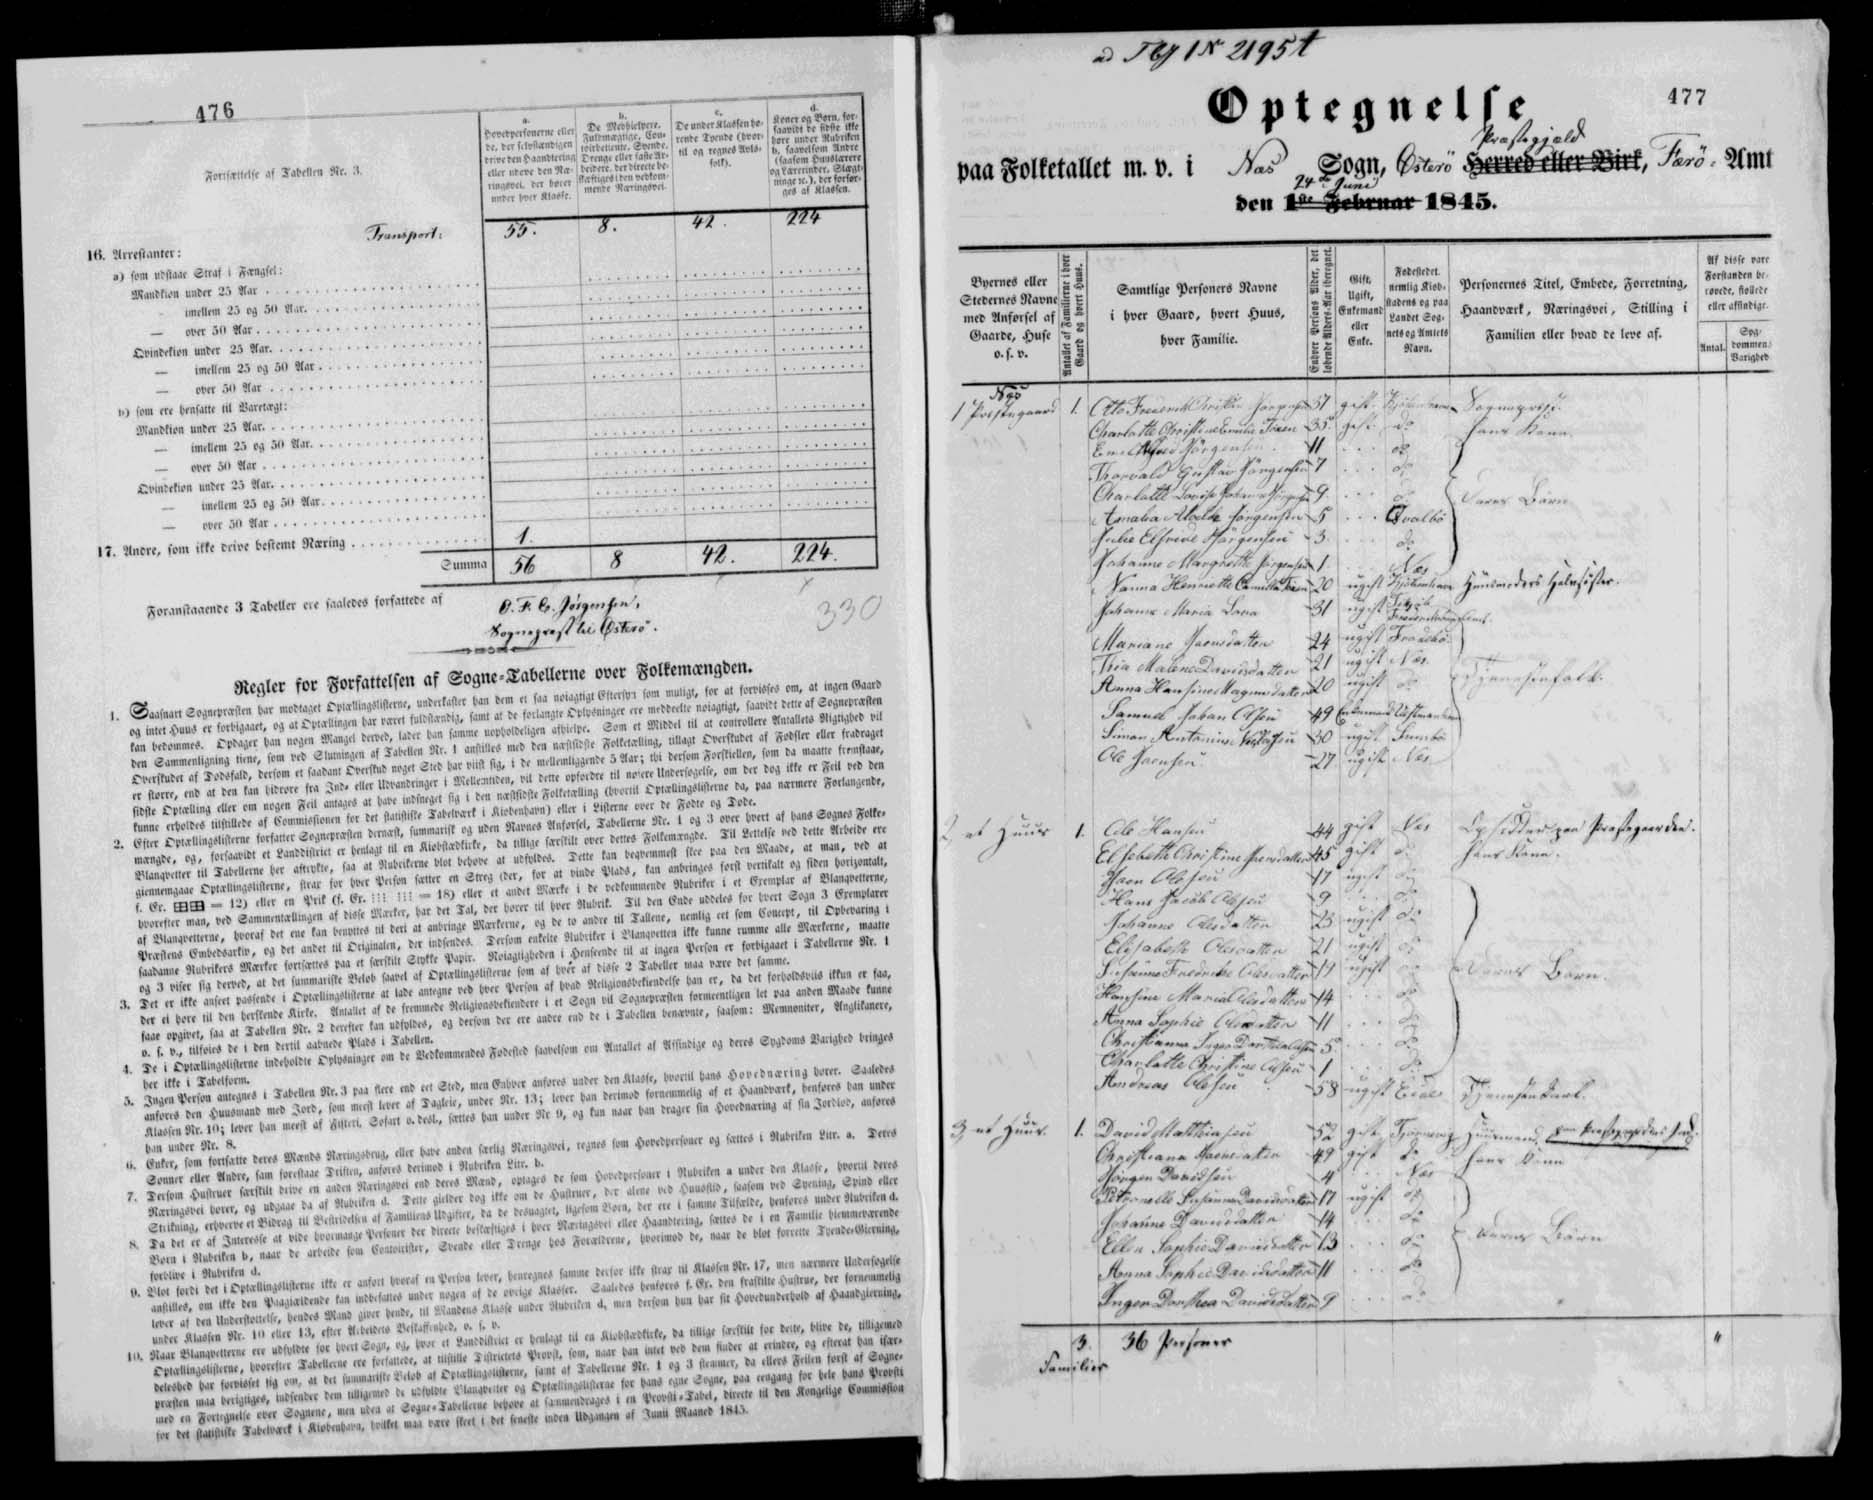 476
Fortsættelse af Tabellen Nr. 3.
a.
Hovedpersonerne eller
de, der selvstændigen
drive den Haandtering
eller udøve den Næ-
ringsvei, der hører
under hver Klasse.
b.
De Medhielpere,
Fuldmægtige, Con-
toirbetiente, Svende,
Drenge eller faste Ar-
beidere, der directe be-
skæftiges i den vedkom-
mende Næringsvei.
c.
De under Klassen hø-
rende Tyende (hvor-
til og regnes Avls-
folk).
d.
Koner og Børn, for-
saavidt de sidste ikke
høre under Rubriken
b, saavelsom Andre
(saasom Huuslærere
og Lærerinder, Slægt-
ninge ec.), der forsør-
ges af Klassen.
Transport: 55. 8. 42. 224
16. Arrestanter:
a) som udstaae Straf i Fængsel:
Mandkiøn under 25 Aar
— imellem 25 og 50 Aar
— over 50 Aar
Qvindekiøn under 25 Aar
— imellem 25 og 50 Aar
— over 50 Aar
b) som ere hensatte til Varetægt:
Mandkiøn under 25 Aar
— imellem 25 og 50 Aar
— over 50 Aar
Qvindekiøn under 25 Aar
— imellem 25 og 50 Aar
— over 50 Aar
17. Andre, som ikke drive bestemt Næring 1.
Summa 56 8 42. 224.
Foranstaaende 3 Tabeller ere saaledes forfattede af
O. F. C. Jørgensen,
Sognepræst til Österö.
330
Regler for Forfattelsen af Sogne-Tabellerne over Folkemængden.
1. Saasnart Sognepræsten har modtaget Optællingslisterne, underkaster han dem et saa nøiagtigt Eftersyn som muligt, for at forvisses om, at ingen Gaard
og intet Huus er forbigaaet, og at Optællingen har været fuldstændig, samt at de forlangte Oplysninger ere meddeelte nøiagtigt, saavidt dette af Sognepræsten
kan bedømmes. Opdager han nogen Mangel derved, lader han samme uopholdeligen afhielpe. Som et Middel til at controllere Antallets Rigtighed vil
den Sammenligning tiene, som ved Slutningen af Tabellen Nr. 1 anstilles med den næstsidste Folketælling, tillagt Overskudet af Fødsler eller fradraget
Overskudet af Dødsfald, dersom et saadant Overskud noget Sted har viist sig, i de mellemliggende 5 Aar; thi dersom Forskiellen, som da maatte fremstaae,
er større, end at den kan hidrøre fra Ind- eller Udvandringer i Mellemtiden, vil dette opfordre til nøiere Undersøgelse, om der dog ikke er Feil ved den
sidste Optælling eller om nogen Feil antages at have indsneget sig i den næstsidste Folketælling (hvortil Optællingslisterne da, paa nærmere Forlangende,
kunne erholdes tilstillede af Commissionen for det statistiske Tabelværk i Kiøbenhavn) eller i Listerne over de Fødte og Døde.
2. Efter Optællingslisterne forfatter Sognepræsten dernæst, summarisk og uden Navnes Anførsel, Tabellerne Nr. 1 og 3 over hvert af hans Sognes Folke-
mængde, og, forsaavidt et Landdistrict er henlagt til en Kiøbstædkirke, da tillige særskilt over dettes Folkemængde. Til Lettelse ved dette Arbeide ere
Blanqvetter til Tabellerne her aftrykte, saa at Rubrikerne blot behøve at udfyldes. Dette kan beqvemmest skee paa den Maade, at man, ved at
giennemgaae Optællingslisterne, strax for hver Person sætter en Streg (der, for at vinde Plads, kan anbringes først vertikalt og siden horizontalt,
f. Ex. = 12) eller en Prik (f. Ex. = 18) eller et andet Mærke i de vedkommende Rubriker i et Exemplar af Blanqvetterne,
hvorefter man, ved Sammentællingen af disse Mærker, har det Tal, der hører til hver Rubrik. Til den Ende uddeles for hvert Sogn 3 Exemplarer
af Blanqvetterne, hvoraf det ene kan benyttes til deri at anbringe Mærkerne, og de to andre til Tallene, nemlig eet som Concept, til Opbevaring i
Præstens Embedsarkiv, og det andet til Originalen, der indsendes. Dersom enkelte Rubriker i Blanqvetten ikke kunne rumme alle Mærkerne, maatte
saadanne Rubrikers Mærker fortsættes paa et særskilt Stykke Papir. Nøiagtigheden i Henseende til at ingen Person er forbigaaet i Tabellerne Nr. 1
og 3 viser sig derved, at det summariske Beløb saavel af Optællingslisterne som af hver af disse 2 Tabeller maa være det samme.
3. Det er ikke anseet passende i Optællingslisterne at lade antegne ved hver Person af hvad Religionsbekiendelse han er, da det forholdsviis ikkun er faa,
der ei høre til den herskende Kirke. Antallet af de fremmede Religionsbekiendere i et Sogn vil Sognepræsten formeentligen let paa anden Maade kunne
faae opgivet, saa at Tabellen Nr. 2 derefter kan udfyldes, og dersom der ere andre end de i Tabellen benævnte, saasom: Memnoniter, Anglikanere,
o. s. v., tilføies de i den dertil aabnede Plads i Tabellen.
4. De i Optællingslisterne indeholdte Oplysninger om de Vedkommendes Fødested saavelsom om Antallet af Afsindige og deres Sygdoms Varighed bringes
her ikke i Tabelform.
5. Ingen Person antegnes i Tabellen Nr. 3 paa flere end eet Sted, men Enhver anføres under den Klasse, hvortil hans Hovednæring hører. Saaledes
anføres den Huusmand med Jord, som meest lever af Dagleie, under Nr. 13; lever han derimod fornemmelig af et Haandværk, henføres han under
Klassen Nr. 10; lever han meest af Fiskeri, Søfart o. desl., sættes han under Nr 9, og kun naar han drager sin Hovednæring af sin Jordlod, anføres
han under Nr. 8.
6. Enker, som fortsætte deres Mænds Næringsbrug, eller have anden særlig Næringsvei, regnes som Hovedpersoner og sættes i Rubriken Litr. a. Deres
Sønner eller Andre, som forestaae Driften, anføres derimod i Rubriken Litr. b.
7. Dersom Hustruer særskilt drive en anden Næringsvei end deres Mænd, optages de som Hovedpersoner i Rubriken a under den Klasse, hvortil deres
Næringsvei hører, og udgaae da af Rubriken d. Dette gielder dog ikke om de Hustruer, der alene ved Huusflid, saasom ved Syening, Spind eller
Strikning, erhverve et Bidrag til Bestridelsen af Familiens Udgifter, da de desuagtet, ligesom Børn, der ere i samme Tilfælde, henføres under Rubriken d.
8. Da det er af Interesse at vide hvormange Personer der directe beskæftiges i hver Næringsvei eller Haandtering, sættes de i en Familie hiemmeværende
Børn i Rubriken b, naar de arbeide som Contoirister, Svende eller Drenge hos Forældrene, hvorimod de, naar de blot forrette Tyende-Gierning,
forblive i Rubriken d.
9. Blot fordi det i Optællingslisterne ikke er anført hvoraf en Person lever, henregnes samme derfor ikke strax til Klassen Nr. 17, men nærmere Undersøgelse
anstilles, om ikke den Paagiældende kan indbefattes under nogen af de øvrige Klasser. Saaledes henføres f. Ex. den fraskilte Hustrue, der fornemmelig
lever af den Understøttelse, hendes Mand giver hende, til Mandens Klasse under Rubriken d, men dersom hun har sit Hovedunderhold af Haandgierning,
under Klassen Nr. 10 eller 13, efter Arbeidets Beskaffenhed, o. s. v.
10. Naar Blanqvetterne ere udfyldte for hvert Sogn, og, hvor et Landdistrict er henlagt til en Kiøbstædkirke, da tillige særskilt for dette, blive de, tilligemed
Optællingslisterne, hvorefter Tabellerne ere forfattede, at tilstille Districtets Provst, som, naar han intet ved dem finder at erindre, og efterat han især-
deleshed har forvisset sig om, at det summariske Beløb af Optællingslisterne, samt af Tabellerne Nr. 1 og 3 stemmer, da ellers Feilen først af Sogne-
præsten maa berigtiges, indsender dem tilligemed de udfyldte Blanqvetter og Optællingslisterne for hans egne Sogne, paa eengang for hele hans Provsti
med en Fortegnelse over Sognene, men uden at Sogne-Tabellerne behøve at sammendrages i en Provsti-Tabel, directe til den Kongelige Commission
for det statistiske Tabelværk i Kiøbenhavn, hvilket maa være skeet i det seneste inden Udgangen af Junii Maaned 1845.
2195
477
Optegnelse
Præstegjæld
paa Folketallet m. v. i Næs Sogn, Österö Herred eller Birk, Færö Amt
24de Juni
den 1ste Februar 1845.
Byernes eller
Stedernes Navne
med Anførsel af
Gaarde, Huse
o. s. v.
Antallet af Familierne i hver
Gaard og hvert Huus.
Samtlige Personers Navne
i hver Gaard, hvert Huus,
hver Familie.
Enhver Persons Alder, det
løbende Alders-Aar iberegnet.
Gift,
Ugift,
Enkemand
eller
Enke.
Fødestedet,
nemlig Kiøb-
stadens og paa
Landet Sog-
nets og Amtets
Navn.
Personernes Titel, Embede, Forretning,
Haandværk, Næringsvei, Stilling i
Familien eller hvad de leve af.
Af disse vare
Forstanden be-
røvede, fiollede
eller afsindige.
Antal.
Syg-
dommens
Varighed.
Næs
1 Præstegaard 1. Otto Frederik Christian Jørgensen 37 gift Kjöbenhavn Sognepræst
Charlotte Christine Emilie 35 gift do hans Kone
Emil Jörgensen 11 do
Thorvald Gustav Jörgensen 7 do
Charlotte Louise Jørgensen 9 do Deres Børn
Amalia Jørgensen 5 Qvalbö
Julie Elfride Jörgensen 3 do
Johanne Margrethe Jörgensen 1 Næs
Nanna Henriette Camilla 20 ugift Kjöbenhavn Huusmoders Halvsöster.
Johanne Maria 31 ugift
Mariane Joensdatter 24 ugift
Thia Malene Davidsdatter 21 ugift Næs Tjenestefolk.
Anna Hansine Magnusdatter 20 ugift do
Samuel Johan Olsen 49 Enkemand
Simon Antonius 30 ugift Sumbö
Ole Joensen 27 ugift Næs
2, et Huus 1. Ole Hansen 44 gift Næs Opsidder paa Præstegaarden.
Elsebeth Christine Joensdatter 45 gift do hans Kone.
Joen Olesen 17 ugift do
Hans Jacob Olesen 9 do
Johanne Olesdatter 23 ugift do
Elisabeth Olesdatter 21 ugift do
Susanne Fredrikke Olesdatter 19 ugift do Deres Børn.
Hansine Maria Olesdatter 14 do
Anna Sophie Olesdatter 11 do
Christianna Inger Dorthea Olesen 5 do
Charlotte Christine Olesen 1 do
Andreas Olesen 58 ugift Eide Tjenestekarl.
3, et Huus. 1. David Matthiasen 52 gift Huusmand,
Christiana Joensdatter 49 gift do hans Kone
Jörgen Davidsen 4 Næs
Petronelle Susanne Davidsdatter 17 ugift do
Johanne Davidsdatter 14 do
Ellen Sophie Davidsdatter 13 do Deres Börn
Anna Sophie Davidsdatter 11 do
Inger Dorthea Davidsdatter 9 do
3. 36 Personer "
Familier